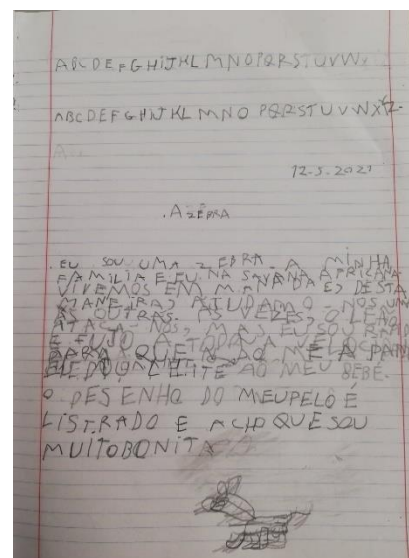 ABCDEFGHIJKLMNOPQRSTUVW
ABCDEFGHIJKLMNOPQRSTUVWXYZ
A
12-5-2021
.A ZEBRA
.EU SOU UMA ZEBRA. A MINHA
FAMILIA E EU NA SAVANA AFRICANA
VIVEMOS EM MANADA E, DESTA
MANEIRA, AJUDAMO-NOS UM
AS OUTRAS. AS VEZES, O LEÃO
ATACA-NOS, MAS EU SOU
E FUJO A TODA A
PARA QUE NÃO ME APANHE
LEITE AO MEU BEBÉ.
O DESENHO DO MEUPELO É
LISTRADO E ACHO QUE SOU
MUITOBONITA